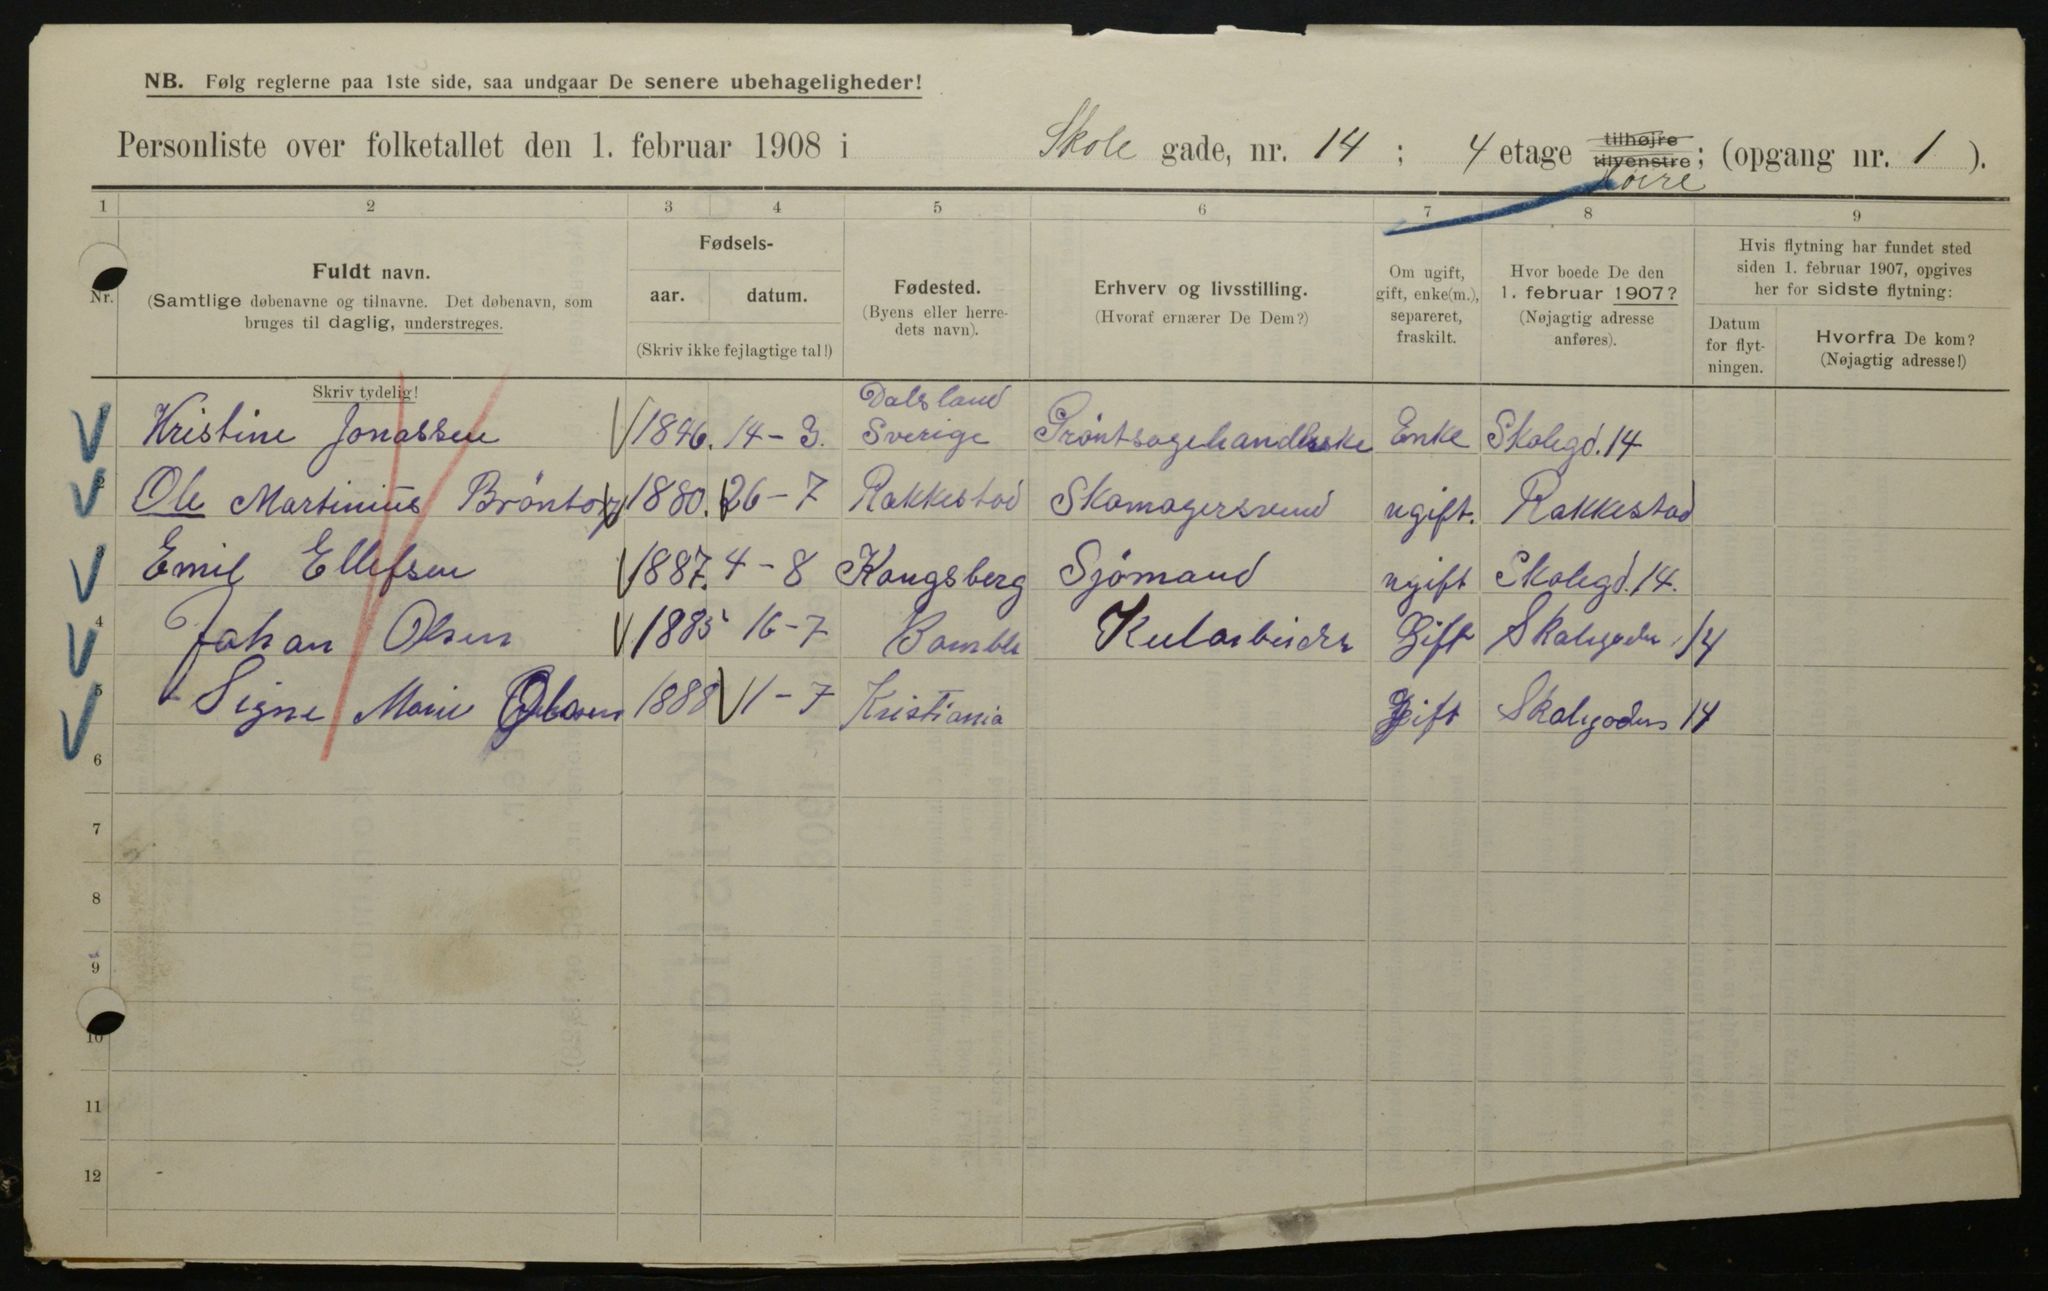 NB. Følg reglerne paa 1ste side, saa undgaar De senere ubehageligheder!
Personliste over folketallet den 1. februar 1908 i Skole gade, nr. 14 ; 4 etage tilhøjre tilvenstre ; (opgang nr. 1 ).
Høire
1 2 3 4 5 6 7 8 9
Nr.
Fuldt navn.
(Samtlige døbenavne og tilnavne. Det døbenavn, som
bruges til daglig, understreges.
Fødsels-
aar. datum.
(Skriv ikke fejlagtige tal!)
Fødested.
(Byens eller herre-
dets navn).
Erhverv og livsstilling.
(Hvoraf ernærer De Dem?)
Om ugift,
gift, enke(m.),
separeret,
fraskilt.
Hvor boede De den
1. februar 1907?
(Nøjagtig adresse
anføres).
Hvis flytning har fundet sted
siden 1. februar 1907, opgives
her for sidste flytning:
Datum
for flyt-
ningen.
Hvorfra De kom?
(Nøjagtig adresse!)
Skriv tydelig!
Dalsland
1 Kristine Jonassen 1846. 14-3. Sverige Grøntsagehandlerske Enke Skolegd. 14
2 Ole Martinius 1880. 26-7 Rakkestad Skomagersvend ugift. Rakkestad
3 Emil Ellefsen 1887. 4-8 Kongsberg Sjömand ugift Skolegd. 14.
4 Johan Olsen 1885 16-7 Bamble Kularbeider Gift Skolegaden 14
5 Signe Marie Olsen 1888 1-7 Kristiania Gift Skolegaden 14
6
7
8
9
10
11
12